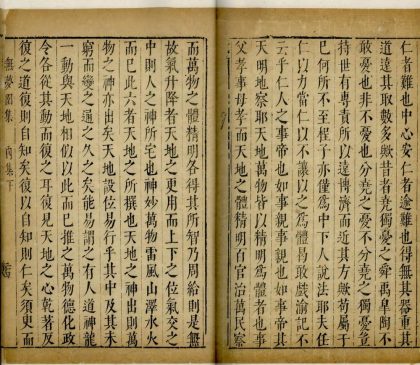 仁者難也中心安仁者逾難也得無其器重其
道遠其取數多歟昔者堯獨憂之舜禹皋陶不
敢憂也非不憂也不分堯之憂不分堯之
待世有專責所以達博濟而近其方歟苟屬于
已何所不至程子亦僅為中下人說法耶夫任
仁以力當仁以不讓以之為體曷敢戲渝記不
云乎仁人之事帝也如事親事親也如事帝其
天明地察耶天地萬物皆以為體者也事
父孝事母孝而天地之體精明百官治萬民察
而萬物之體精明各得其所智乃周給則是無
故氣升降者天地之更用而上下之位氣交之
中則人之神所宅也神妙萬物雷風山澤水火
而已此六者天地之所撰也天地之神出則萬
物之神亦出矣天地設位易行乎其中及其未
窮而變之通之久之矣能易謂之有人道神龍
一動與天地相似以此而已推之萬物德化政
令各從其動而復之耳復見天地之心乾著反
復之道復則自知矣復以自知則仁矣須臾而
無夢園集 丙集下